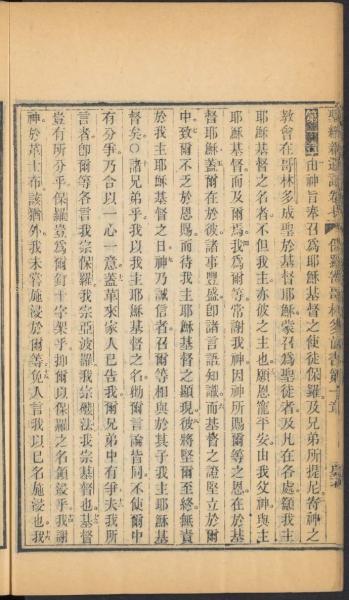 由神言奉召爲耶穌基督之使徒保羅及兄弟所提尼寄神之
教會在哥林多成聖於基督耶穌蒙召爲聖徒者及凡在各處籲我主
耶穌基督之名者不但我主亦彼之主也願恩寵平安由我父神與主
耶穌基督而及爾焉我爲爾等常謝我神因神所賜爾等之恩在於基
督耶穌蓋爾在於彼諸事豐盛即諸言語知識而基督之證堅立於爾
中致爾不乏於恩賜而待我主耶穌基督之顯現彼將堅爾至終無責
於我主耶穌基督之日神乃誠信者召爾等相與於其子我主耶穌基
督矣〇諸兄弟乎我以我主耶穌基督之名勸爾言論皆同不使爾中
有分爭乃合以一心一意蓋革來家人已告我爾兄弟中有爭夫我所
言者即爾等各言我宗保羅我宗亞波羅我宗磯法我宗基督也基督
豈有所分乎保羅豈爲爾釘十字架乎抑爾以保羅之名領浸乎我謝
神於革士布該猶外我未嘗施浸於爾等免人言我以己名施浸也我